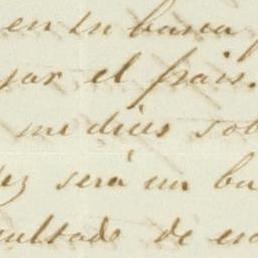 en su busca
jar el pais.
me dices sob
ez será un bu
sultado de es